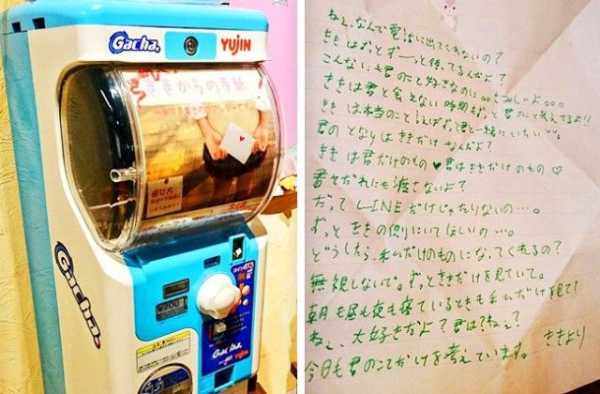 Gacha
YUJIN
ききからの手紙
Gacha
Gacha
YUJIN
ねぇ、なんで電話に出てくれないの？
ききはずっとずーっと待ってるんだよ？
こんなにも君のこと好きなのに…さみしいよ…
ききは君と会えない時間もずっと君のこと考えてるよ!!
ききは本当のこといえばずっと君と一緒にいたい…
君のとなりはききだけなんだよ？
ききは君だけのもの♥君はききだけのもの♡
君をだれにも渡さないよ？
だってLINEだけじゃたりないの…。
ずっとききの側にいてほしいの…。
どうしたら私だけのものになってくれるの？
無視しないで。ずっとききだけを見ていて。
朝も昼も夜も寝ているときも私だけを見て！
ねぇ、大好きだよ？君は？ねぇ？
ききより
今日も君のことだけを考えています。